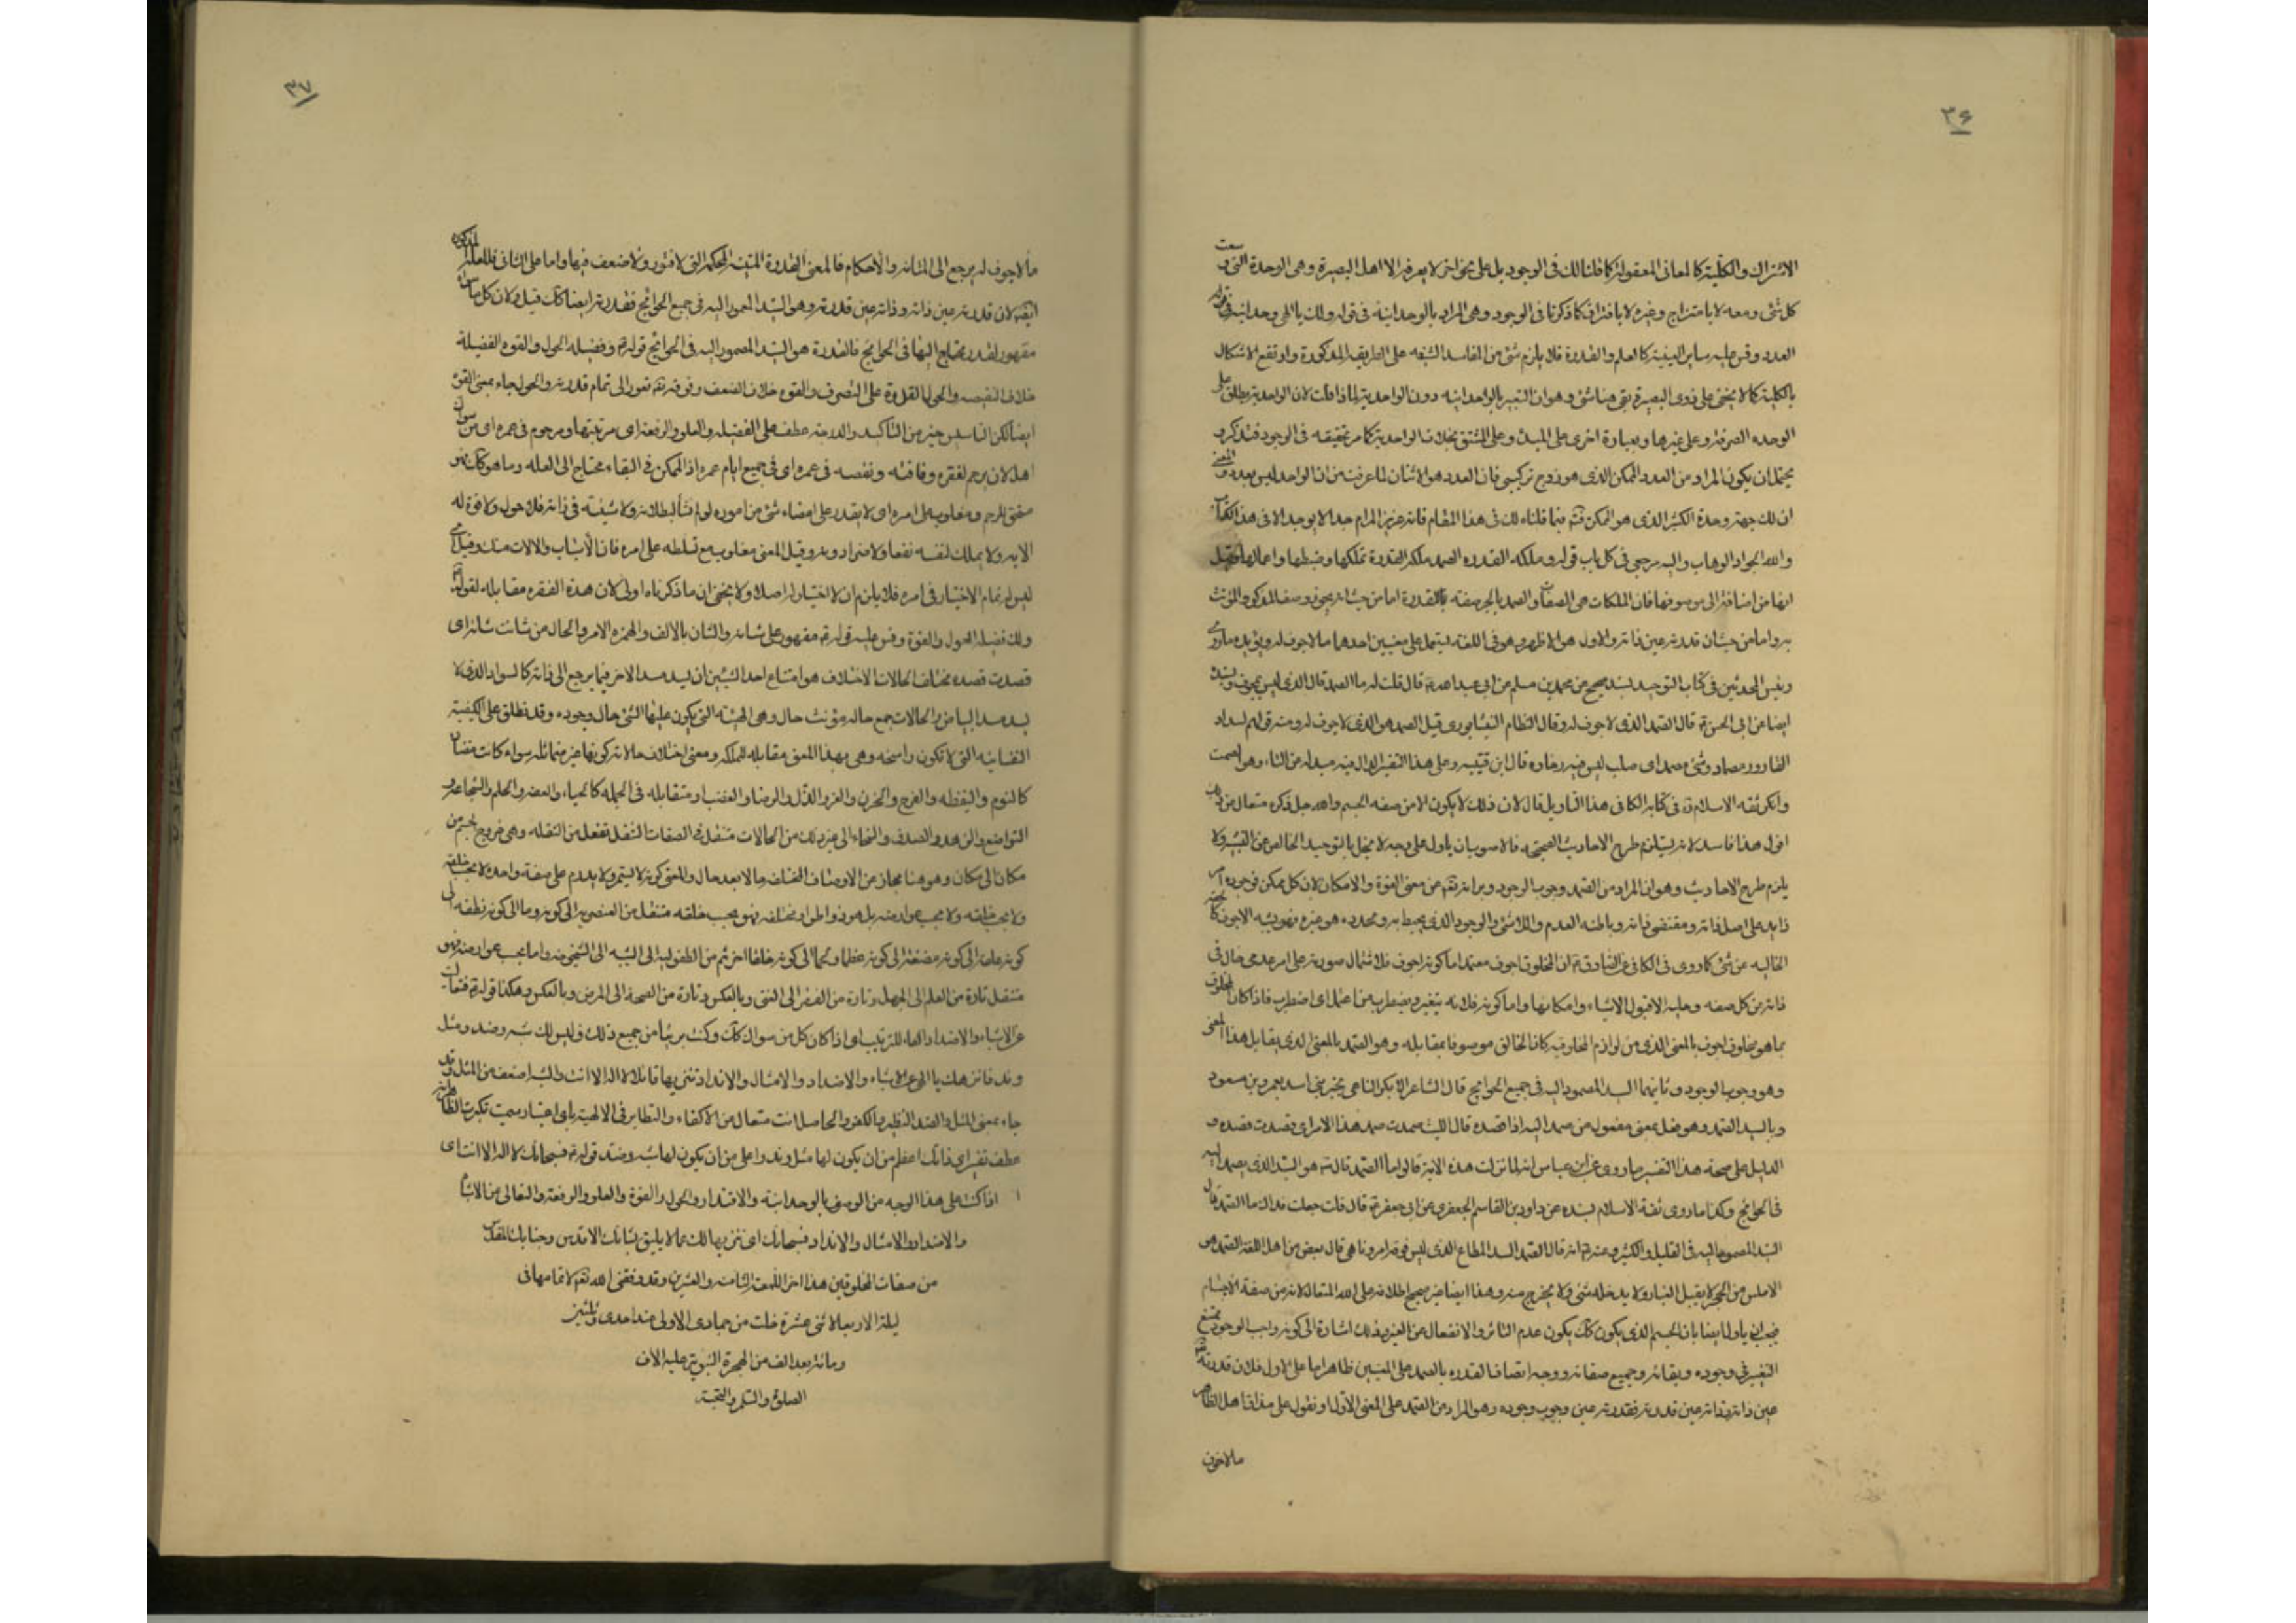 ٣۶
الاشتراك والكلية كالمعانى المعقولة كما قلنا لك فى الوجود بل على نحو اخر لا يعرفه الا اهل البصيرة وهى الوحدة التى وسعت
كل شئ ومعه لا بامتزاج وغيره لا بافتراق كما ذكرنا فى الوجود وهى المراد بالوحدانية فى قوله ولك يا الهى وحدانية
العدد وقس عليه ساير البقية كالعلم والقدرة فلا يلزم شئ من المفاسد الشنعه على الطريقة المذكورة وارتفع الاشكال
بالكلية كما لا يخفى على ذوى البصيرة بقى هنا شئ وهو ان التعبير بالوحدانية دون الواحدية لماذا قلت لان الواحدية يطلق على
الوحده الصرفة وعلى غيرها وبعبارة اخرى على المبدء وعلى المشتق بخلاف الواحدية كما مر تحقيقه فى الوجود فتذكر و
يحتمل ان يكون المراد من العدد الممكن الذى هو زوج تركيبى فان العدد هو الاثنان لما عرفت من ان الواحد ليس بعدد والمعنى
ان لك جهة وحدة الكثير الذى هو الممكن فيما قلناه لك فى هذا المقام فانه عزيز المرام جدا لا يوجد الا فى هذا الكتاب
والله الجواد الوهاب واليه مرجعى فى كل باب قوله وملكه القدره الصمد ملكه القدرة تملكها وضبطها واعمالها وقيل
انها من اضافة الى موصوفها فان الملكات هى الصفات والصمد بالجر صفة بالقدرة اما من حيث انه يجوز وصف المذكر والمؤنث
به واما من حيث ان قدرته عين ذاته والاول هو الاظهر وهو فى اللغة يستعمل على معنيين احدهما ما لا جوف له ويؤيده ما روى
رئيس المحدثين فى كتاب التوحيد بسند صحيح عن محمد بن مسلم عن ابى عبد الله قال قلت له ما الصمد قال الذى ليس بمجوف وبسنده
ايضا عن ابى الحسن قال الصمد الذى لا جوف له وقال النظام النيشابورى قيل الصمد هو الذى لا جوف له ومنه قولهم لسداد
القارورة صماد وشئ مصمد اى صلب ليس فيه رخاوة قال ابن قتيبه وعلى هذا التفسير الدال فيه مبدلة من التاء وهو المصمت
وانكر ثقة الاسلام فى كتابه الكافى هذا التاويل قال لان ذلك لا يكون الا من صفه الجسم والله جل ذكره متعال عن ذلك
اقول هذا فاسد لانه يستلزم طرح الاحاديث الصحيحه فالاصوب ان ياول على وجه لا يخل بالتوحيد الخالص عن التشبيه ولا
يلزم طرح الاحاديث وهو ان المراد من الصمد وجوب الوجود وبرائته عن معنى القوة والامكان لان كل ممكن فوجوده امر
زايد على اصل ذاته ومقتضى ذاته وباطنه العدم واللاشئ والوجود الذى يحيط به ويحدده هو غيره فهو يشبه الاجوف
الخالية عن شئ كما روى فى الكافى عن الصادق ان المخلوق اجوف معتمد اما كونه اجوف فلاشتمال صورته على امر عدمى خال فى
ذاته عن كل صفه وحلية الا قبول الاشياء وامكانها واما كونه فلانه يتغير ويضطرب من اعتمل اى اضطرب فاذا كان المخلوق
بما هو مخلوق اجوف بالمعنى الذى من لوازم المخلوقيه كان الخالق موصوفا بمقابله وهو الصمد بالمعنى الذى يقابل هذا المعنى
وهو وجوب الوجود وثانيهما السيد المصمود اليه فى جميع الحوائج قال الشاعر الا بكر الناعى بخير بنى اسد بعمرو بن مسعود
وبالسيد الصمد وهو فعل بمعنى مفعول من صمد اليه اذا قصده قال الليث صمدت صمد هذا الامر اى قصدت قصده و
الدليل على صحة هذا التفسير ما روى عن ابن عباس انه لما نزلت هذه الاية قالوا ما الصمد قال هو السيد الذى يصمد اليه
فى الحوائج وكذا ما روى ثقة الاسلام بسنده عن داود بن القاسم الجعفرى عن ابى جعفر قال قلت جعلت فداك ما الصمد قال
السيد المصمود اليه فى القليل والكثير وعنه انه قال الصمد السيد المطاع الذى ليس فوقه امر وناهى قال بعض من اهل اللغة الصمد هو
الاملس من الحجر لا يقبل الغبار ولا يدخله شئ ولا يخرج منه وهذا ايضا غير صحيح اطلاقه على الله المتعال لانه من صفة الاجسام
فيجب ان ياول ايضا بان الجسم الذى يكون كك يكون عديم التاثر والانفعال عن الغير وذلك اشارة الى كونه واجب الوجود ممتنع
التغير فى وجوده وبقائه وجميع صفاته ووجه اتصاف القدره بالصمد على المعنيين ظاهر اما على الاول فلان قدرته
عين ذاته وذاته عين قدرته فقدرته عين وجوب وجوده وهو المراد من الصمد على المعنى الاول او نقول على مذاق اهل الظاهر
ما لا جوف
٣٧
ما لا جوف له يرجع الى المتانة والاحكام فالمعنى القدرة المتينة المحكمة التى لا فتور ولا ضعف فيها واما على الثانى فللعلة المذكورة
ايضا لان قدرته عين ذاته وذاته عين قدرته وهو السيد المصمود اليه فى جميع الحوائج فقدرته ايضا كك قيل ولان كل ما سواه
مقهور لقدرته محتاج اليها فى الحوائج فالقدرة هو السيد المصمود اليه فى الحوائج قوله وفضيله الحول والقوه الفضيلة
خلاف النقيصه والحول القدرة على التصرف والقوه خلاف الضعف وقوته تعود الى تمام قدرته والحول جاء بمعنى القوة
ايضا لكن التاسيس خير من التاكيد والدرجة عطف على الفضيله والعلو والرفعة اى مرتبتها ومرحوم فى عمره اى من سواك
اهل لان يرحم لفقره وفاقته ونقصه فى عمره اى فى جميع ايام عمره اذ الممكن فى البقاء محتاج الى العله وما هو كك فهو
مفتقر للرحم ومغلوب على امره اى لا يقدر على امضاء شئ من اموره لولم تشأ لبطلانه ولا شيئيته فى ذاته فلا حول ولا قوة له
الا به ولا يملك لنفسه نفعا ولا ضرا دونه وقيل المعنى مغلوب مع تسلطه على امره فان الاسباب والالات منك وقيل
ليس له تمام الاختيار فى امره فلا يلزم ان لا اختيار له اصلا ولا يخفى ان ما ذكرناه اولى لان هذه الفقره مقابله لقوله
ولك فضيلة الحول والقوة وقس عليه قوله مقهور على شانه والشان بالالف والهمزه الامر والحال من شانت شانه اى
قصدت قصده مختلف الحالات الاختلاف هو امتناع احد الشيئين ان يسد مسد الاخر فيما يرجع الى ذاته كالسواد الذى لا
يسد مسد البياض والحالات جمع حاله مؤنث حال وهى الهيئة التى يكون عليها الشئ حال وجوده وقد تطلق على الكيفية
النفسانيه التى لا تكون راسخه وهى بهذا المعنى مقابله للملكه ومعنى اختلاف حالاته كونها غير متماثله سواء كانت متضاده
كالنوم واليقظه والفرح والحزن والعز والذل والرضا والغضب او متقابله فى الجمله كالحياء والعفه والحلم والشجاعة و
التواضع والزهد والصدق والسخاء الى غير ذلك من الحالات متنقل فى الصفات التنقل تفعل من النقله وهى خروج الجسم من
مكان الى مكان وهو هنا مجاز من الاوصاف المختلفه حالا بعد حال والمعنى كونه لا يستمر ولا يدوم على صفة واحده لا بحسب خلقته
ولا بحسب عوارضه بل هو ذو اطوار مختلفه فهو بحسب خلقه متنقل من العنصرية الى كونه دما الى كونه نطفه الى
كونه علقة الى كونه مضغة الى كونه عظما ولحما الى كونه خلقا اخر ثم من الطفوليه الى الشبيبه الى الشيخوخه واما بحسب عوارضه فهو
متنقل تارة من العلم الى الجهل وتارة من الفقر الى الغنى وبالعكس وتارة من الصحة الى المرض وبالعكس وهكذا قوله فتعاليت
عن الاشباه والاضداد الفاء للترتيب اى اذا كان كل من سواك كك وكنت بريئا من جميع ذلك وليس لك شبه وضد ومثل
وند فانزهك يا الهى عن الاشباه والاضداد والامثال والانداد تنزيها قائلا لا اله الا انت والشبه اضعف من المثل وقد
جاء بمعنى المثل والضد النظير والكفو والحاصل انت متعال عن الاكفاء والنظاير فى الالهية باى اعتبار سميت تكبرت الظاهر انه
عطف تفسير اى ذاتك اعظم من ان يكون لها مثل وند واعلى من ان يكون لها شبه وضد قوله فسبحانك لا اله الا انت اى
اذا كنت على هذا الوجه من الوصف بالوحدانية والاقتدار والحول والقوة والعلو والرفعة والتعالى عن الاشباه
والاضداد والامثال والانداد فسبحانك اى ننزيها لك عما لا يليق بشانك الاقدس وجنابك المقدس
من صفات المخلوقين هذا اخر اللمعة الثامنة والعشرين وقد وفقنى الله لاتمامها فى
ليلة الاربعا لاثنى عشرة خلت من جمادى الاولى سنة احدى وثلثين
ومائة بعد الف من الهجرة النبوية عليه الاف
الصلوة والسلم والتحية